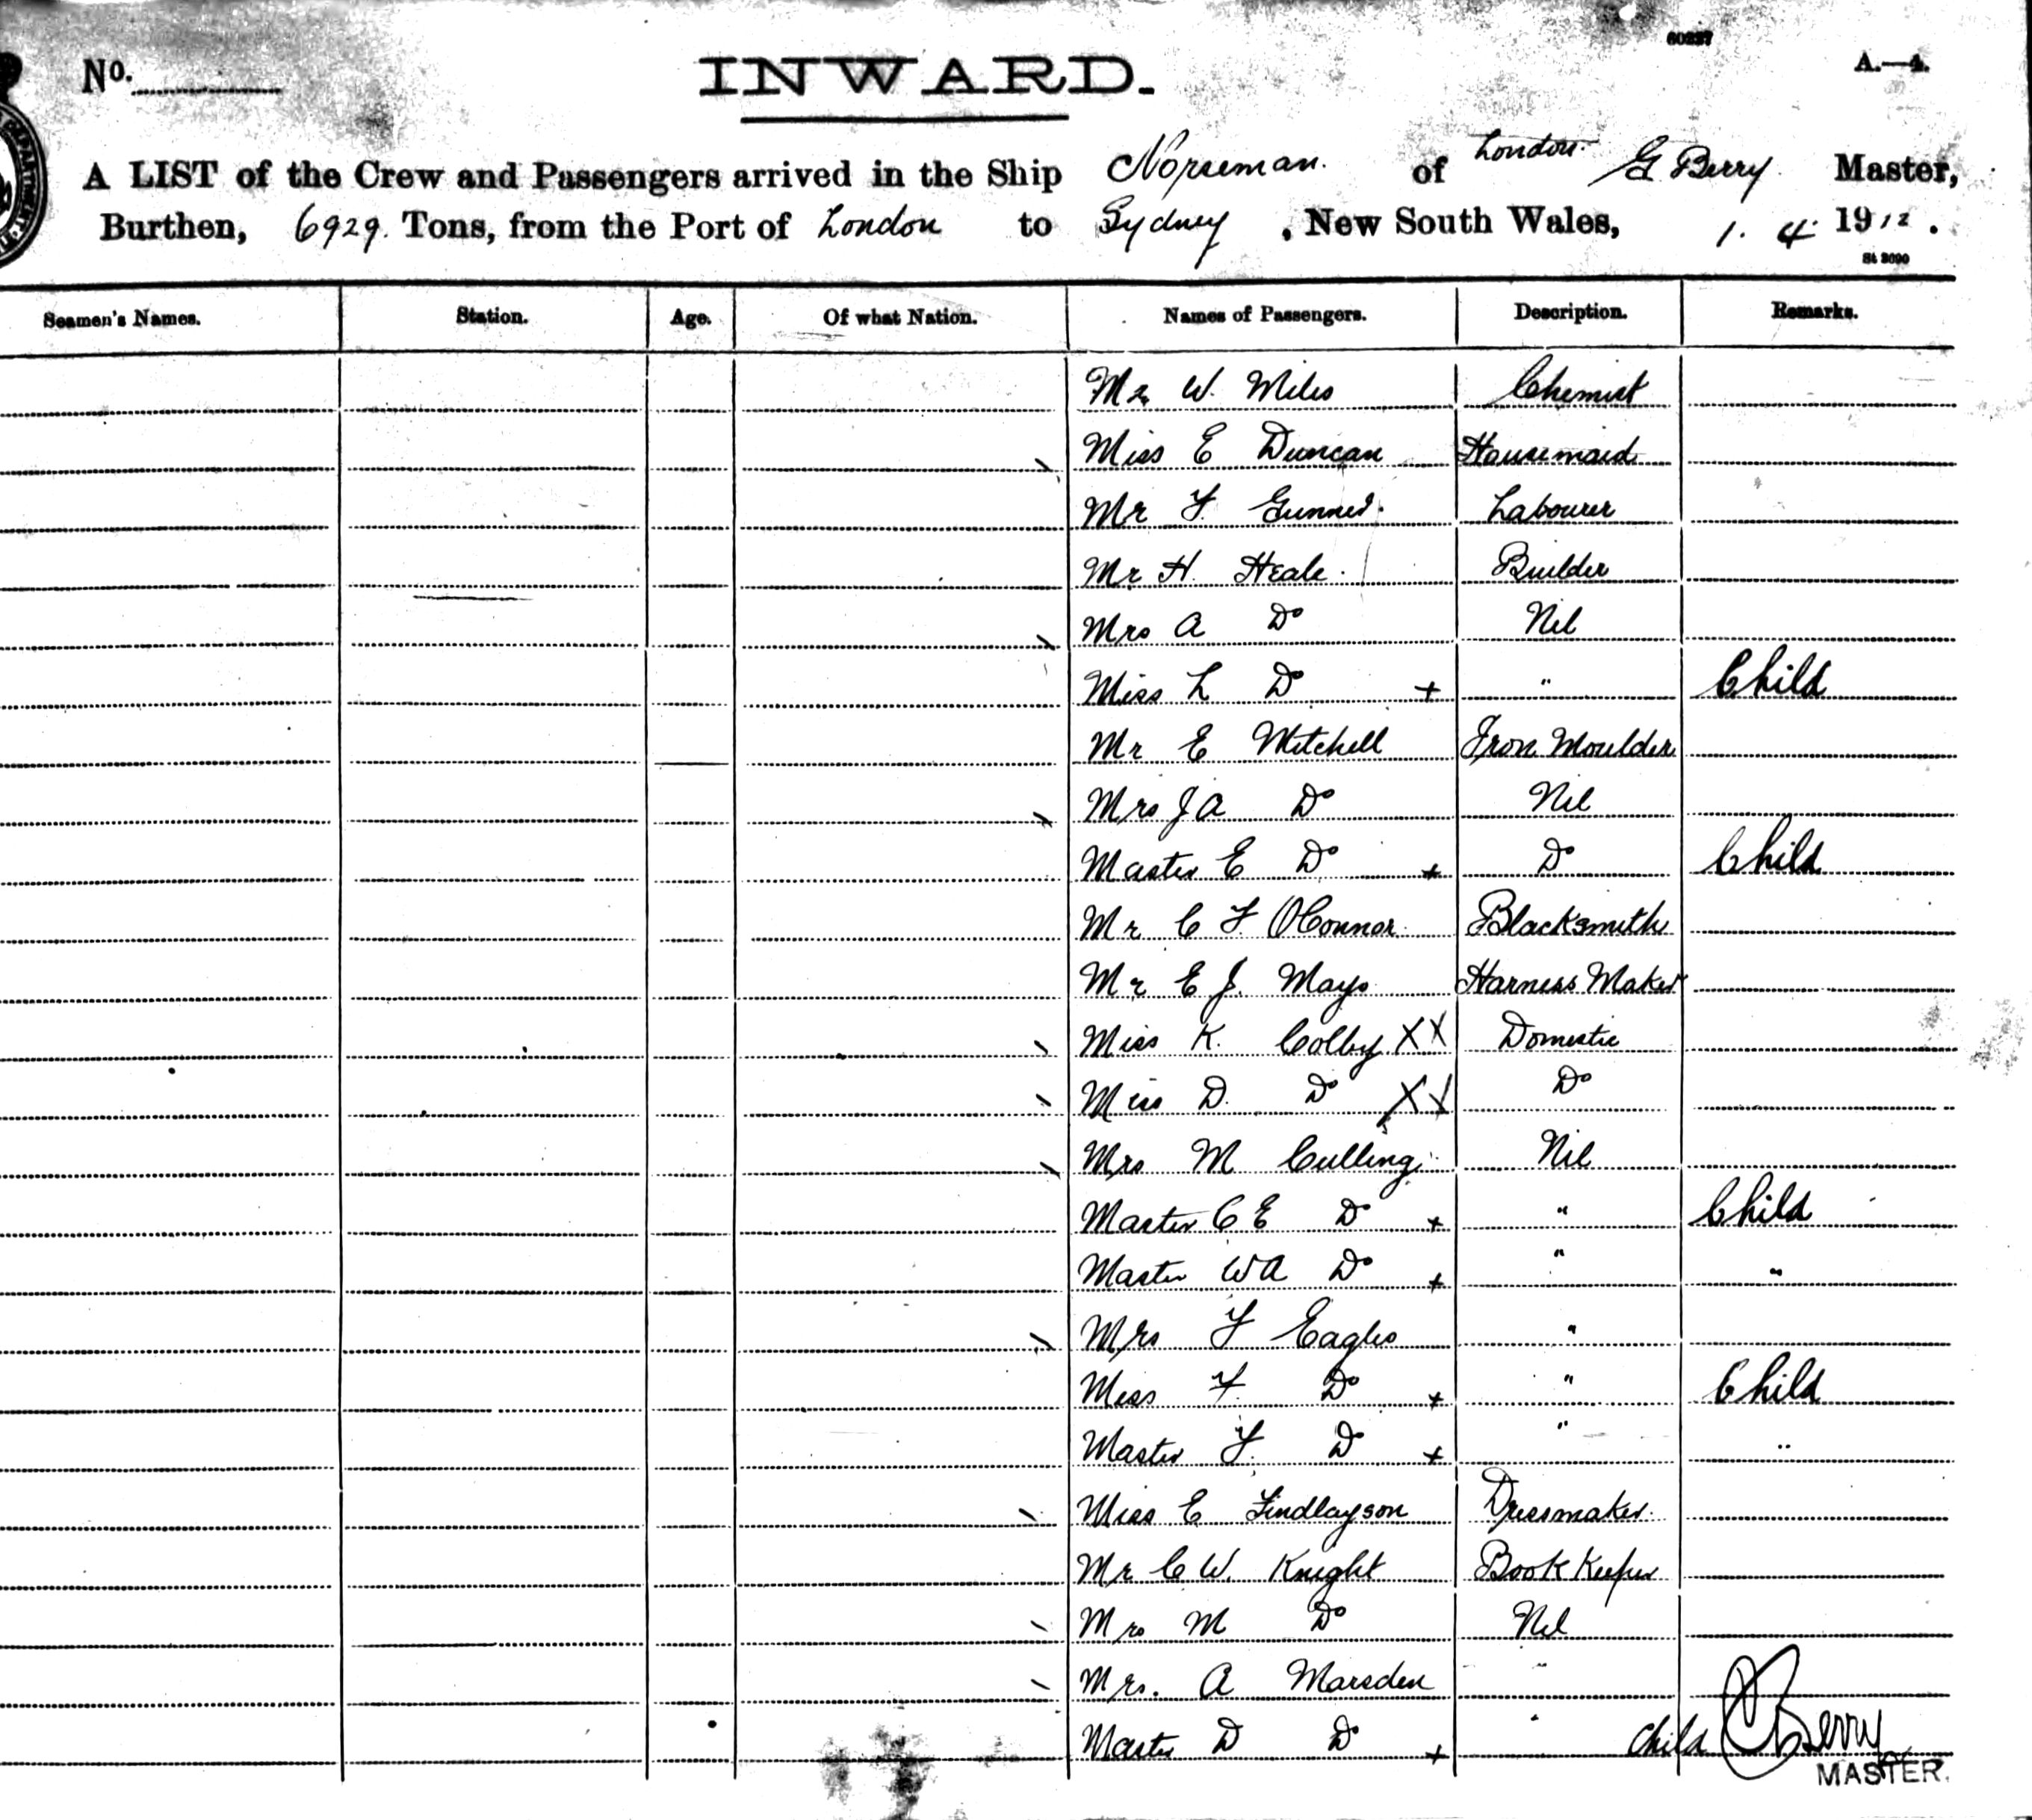 60237
No. INWARD. A.—4.
A LIST of the Crew and Passengers arrived in the Ship Norseman. of London. G Berry. Master,
Burthen, 6929. Tons, from the Port of London to Sydney, New South Wales, 1. 4. 1912.
St 3090
Seamen's Names. Station. Age. Of what Nation. Names of Passengers. Description. Remarks.
Mr W. Miles Chemist
Miss E Duncan Housemaid
Mr F Labourer
Mr H. Heale. Builder
Mrs A Do Nil
Miss L Do + " Child
Mr E Mitchell Iron Moulder
Mrs J A Do Nil
Master E Do + Do Child
Mr C F O'Connor Blacksmith
Mr E J. Mays Harness Maker
Miss K. Colby XX Domestic
Miss D Do XX Do
Mrs M Culling Nil
Master C E Do + " Child
Master W A Do + " "
Mrs F Eagles "
Miss F. Do + " Child
Master F. Do + " "
Miss E Findlayson Dressmaker.
Mr C W. Knight Book Keeper
Mrs M Do Nil
Mrs. A Marsden "
Master D Do + " Child Berry
MASTER.